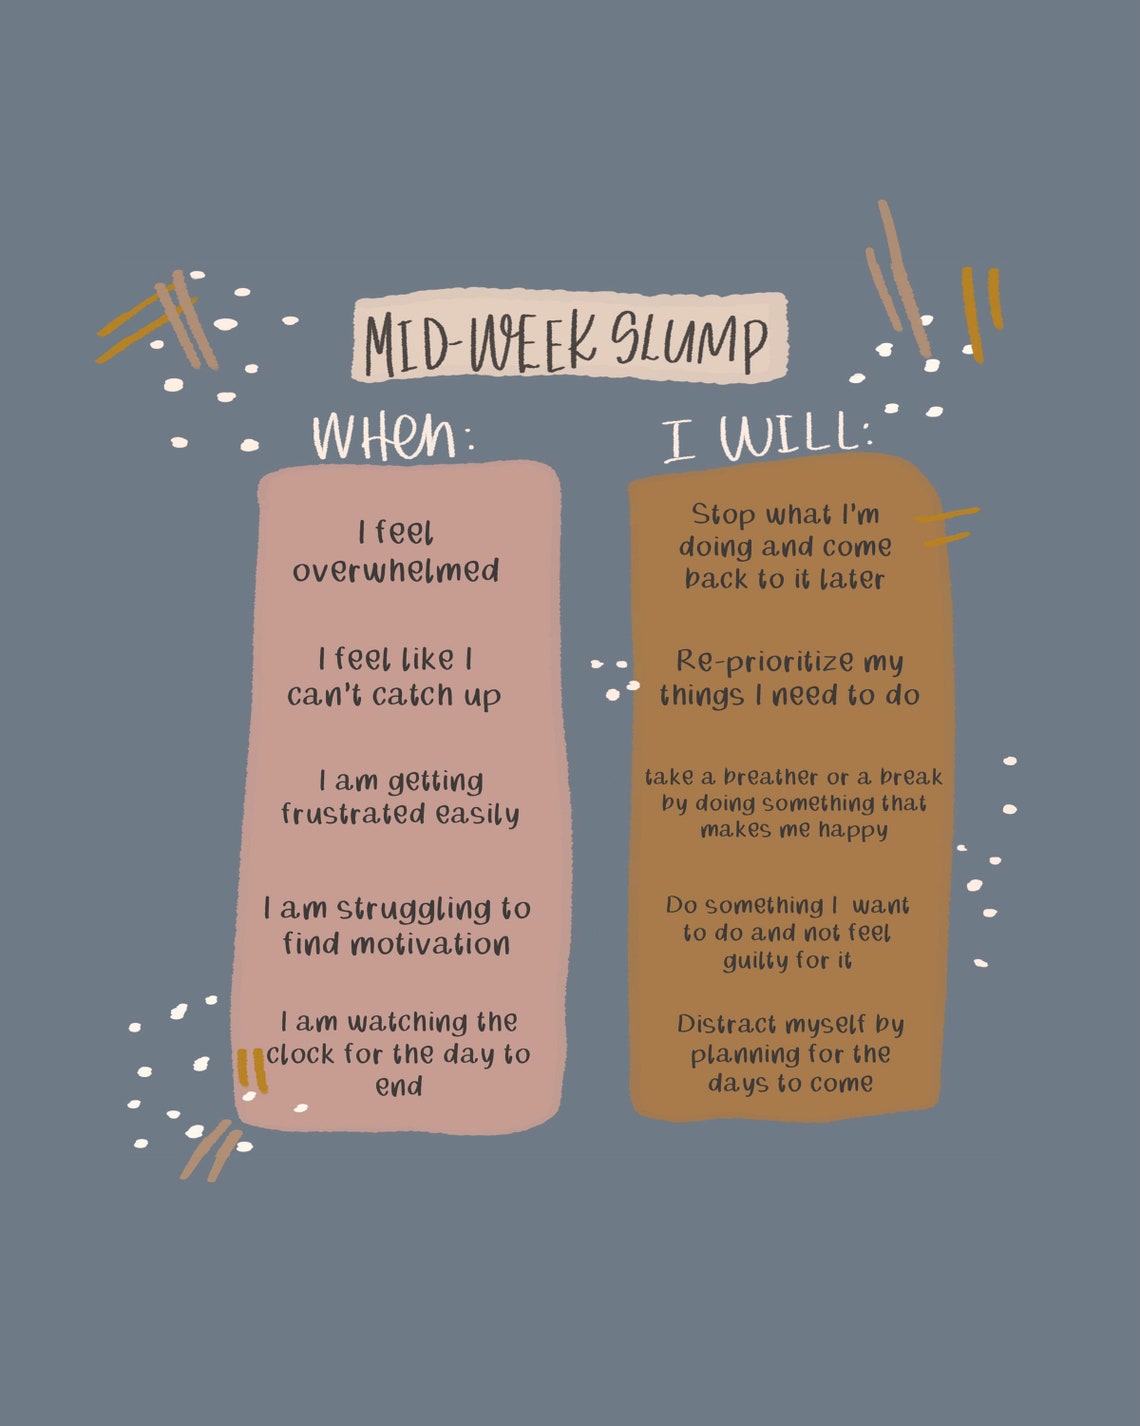 MID-WEEK SLUMP
WHen:
I feel
overwhelmed
I feel like I
can't catch up
I am getting
frustrated easily
I am struggling to
find motivation
I am watching the
clock for the day to
end
I WILL:
Stop what I'm
doing and come
back to it later
Re-prioritize my
things I need to do
take a breather or a break
by doing something that
makes me happy
Do something I want
to do and not feel
guilty for it
Distract myself by
planning for the
days to come